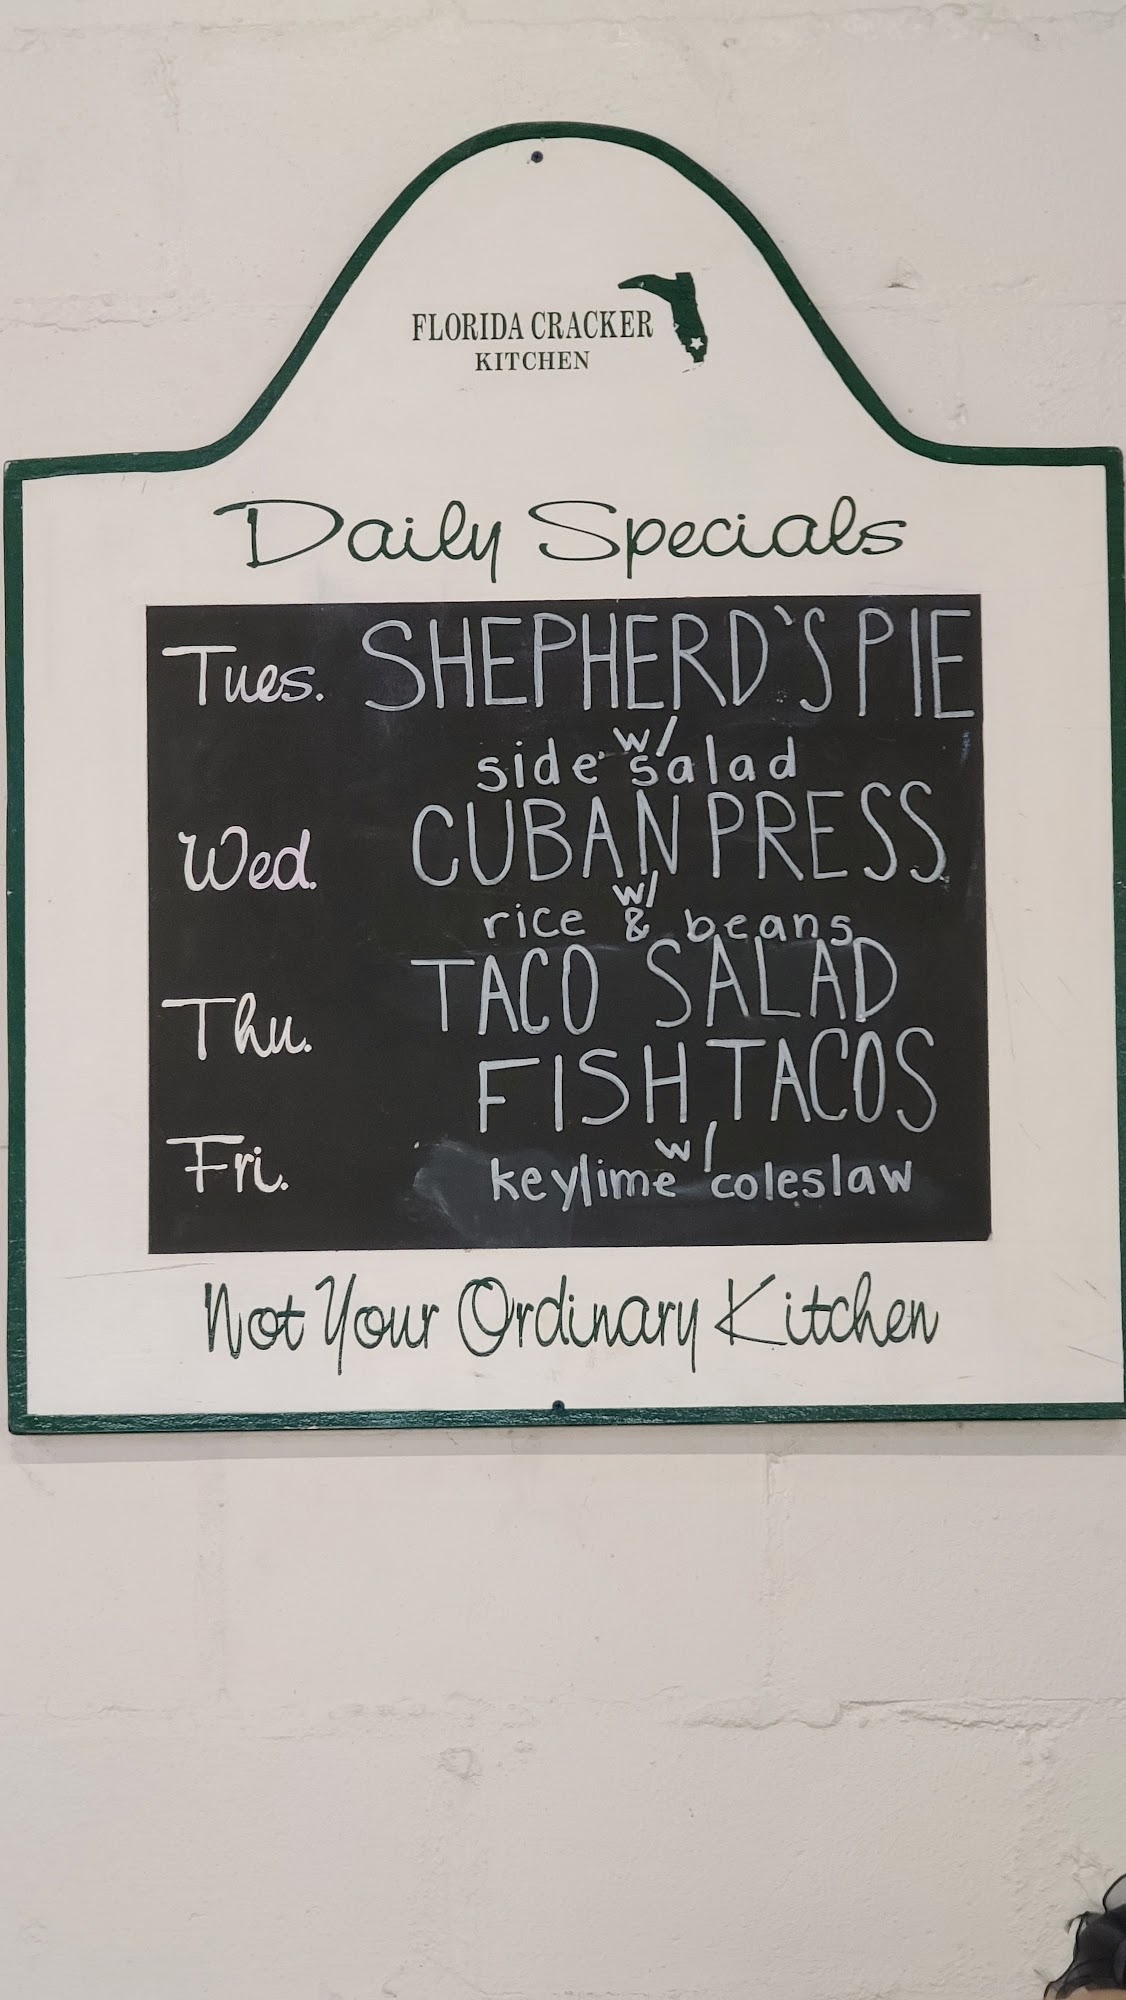 FLORIDA CRACKER
KITCHEN
Daily Specials
Tues. SHEPHERD'S PIE
w/
side salad
Wed. CUBAN PRESS
w/
rice & beans
Thu. TACO SALAD
FISH TACOS
w/
Fri. keylime coleslaw
Not Your Ordinary Kitchen